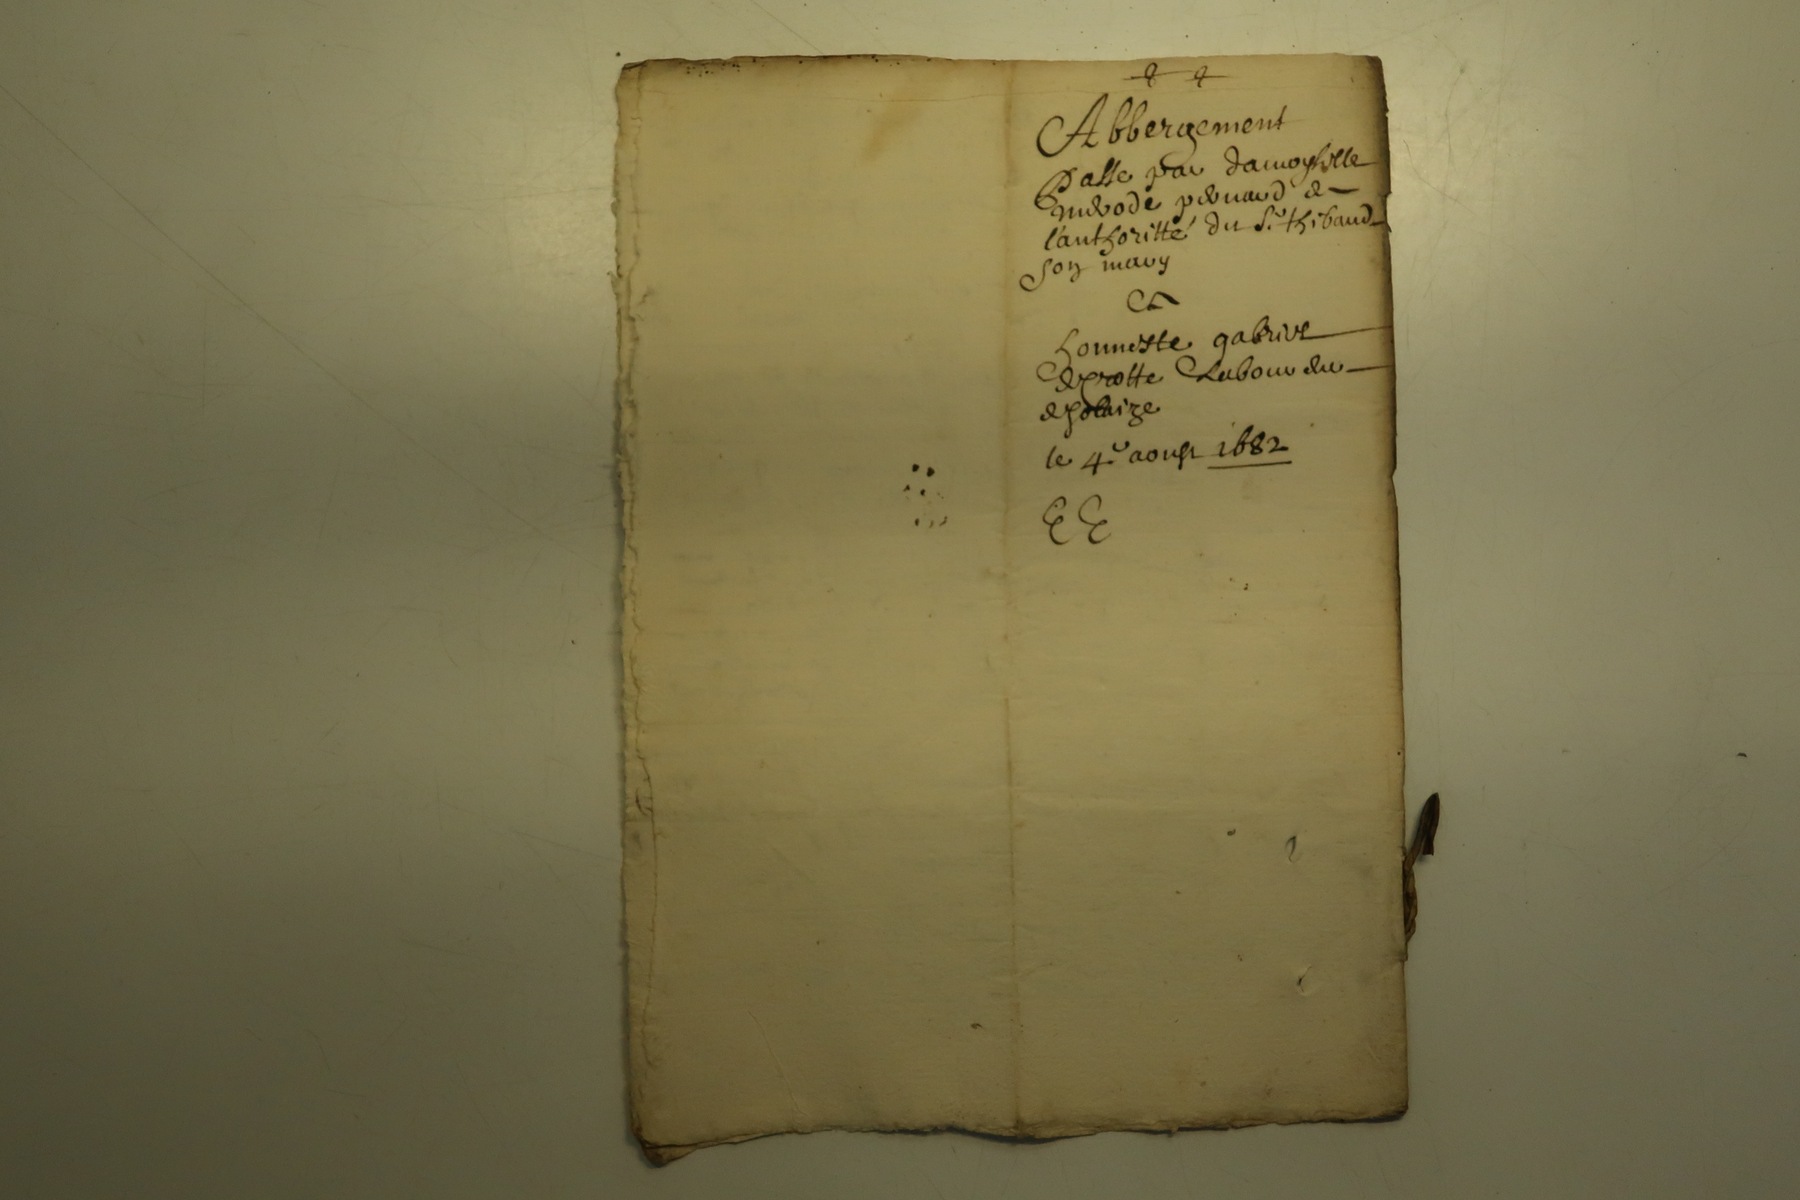 Abbergement
Passe par damoyselle
merode pernard de
l'authoritté du Sr. thibaud
son mary
A
honneste gabriel
de grotte Laboureur
le 4e. aoust 1682
EE